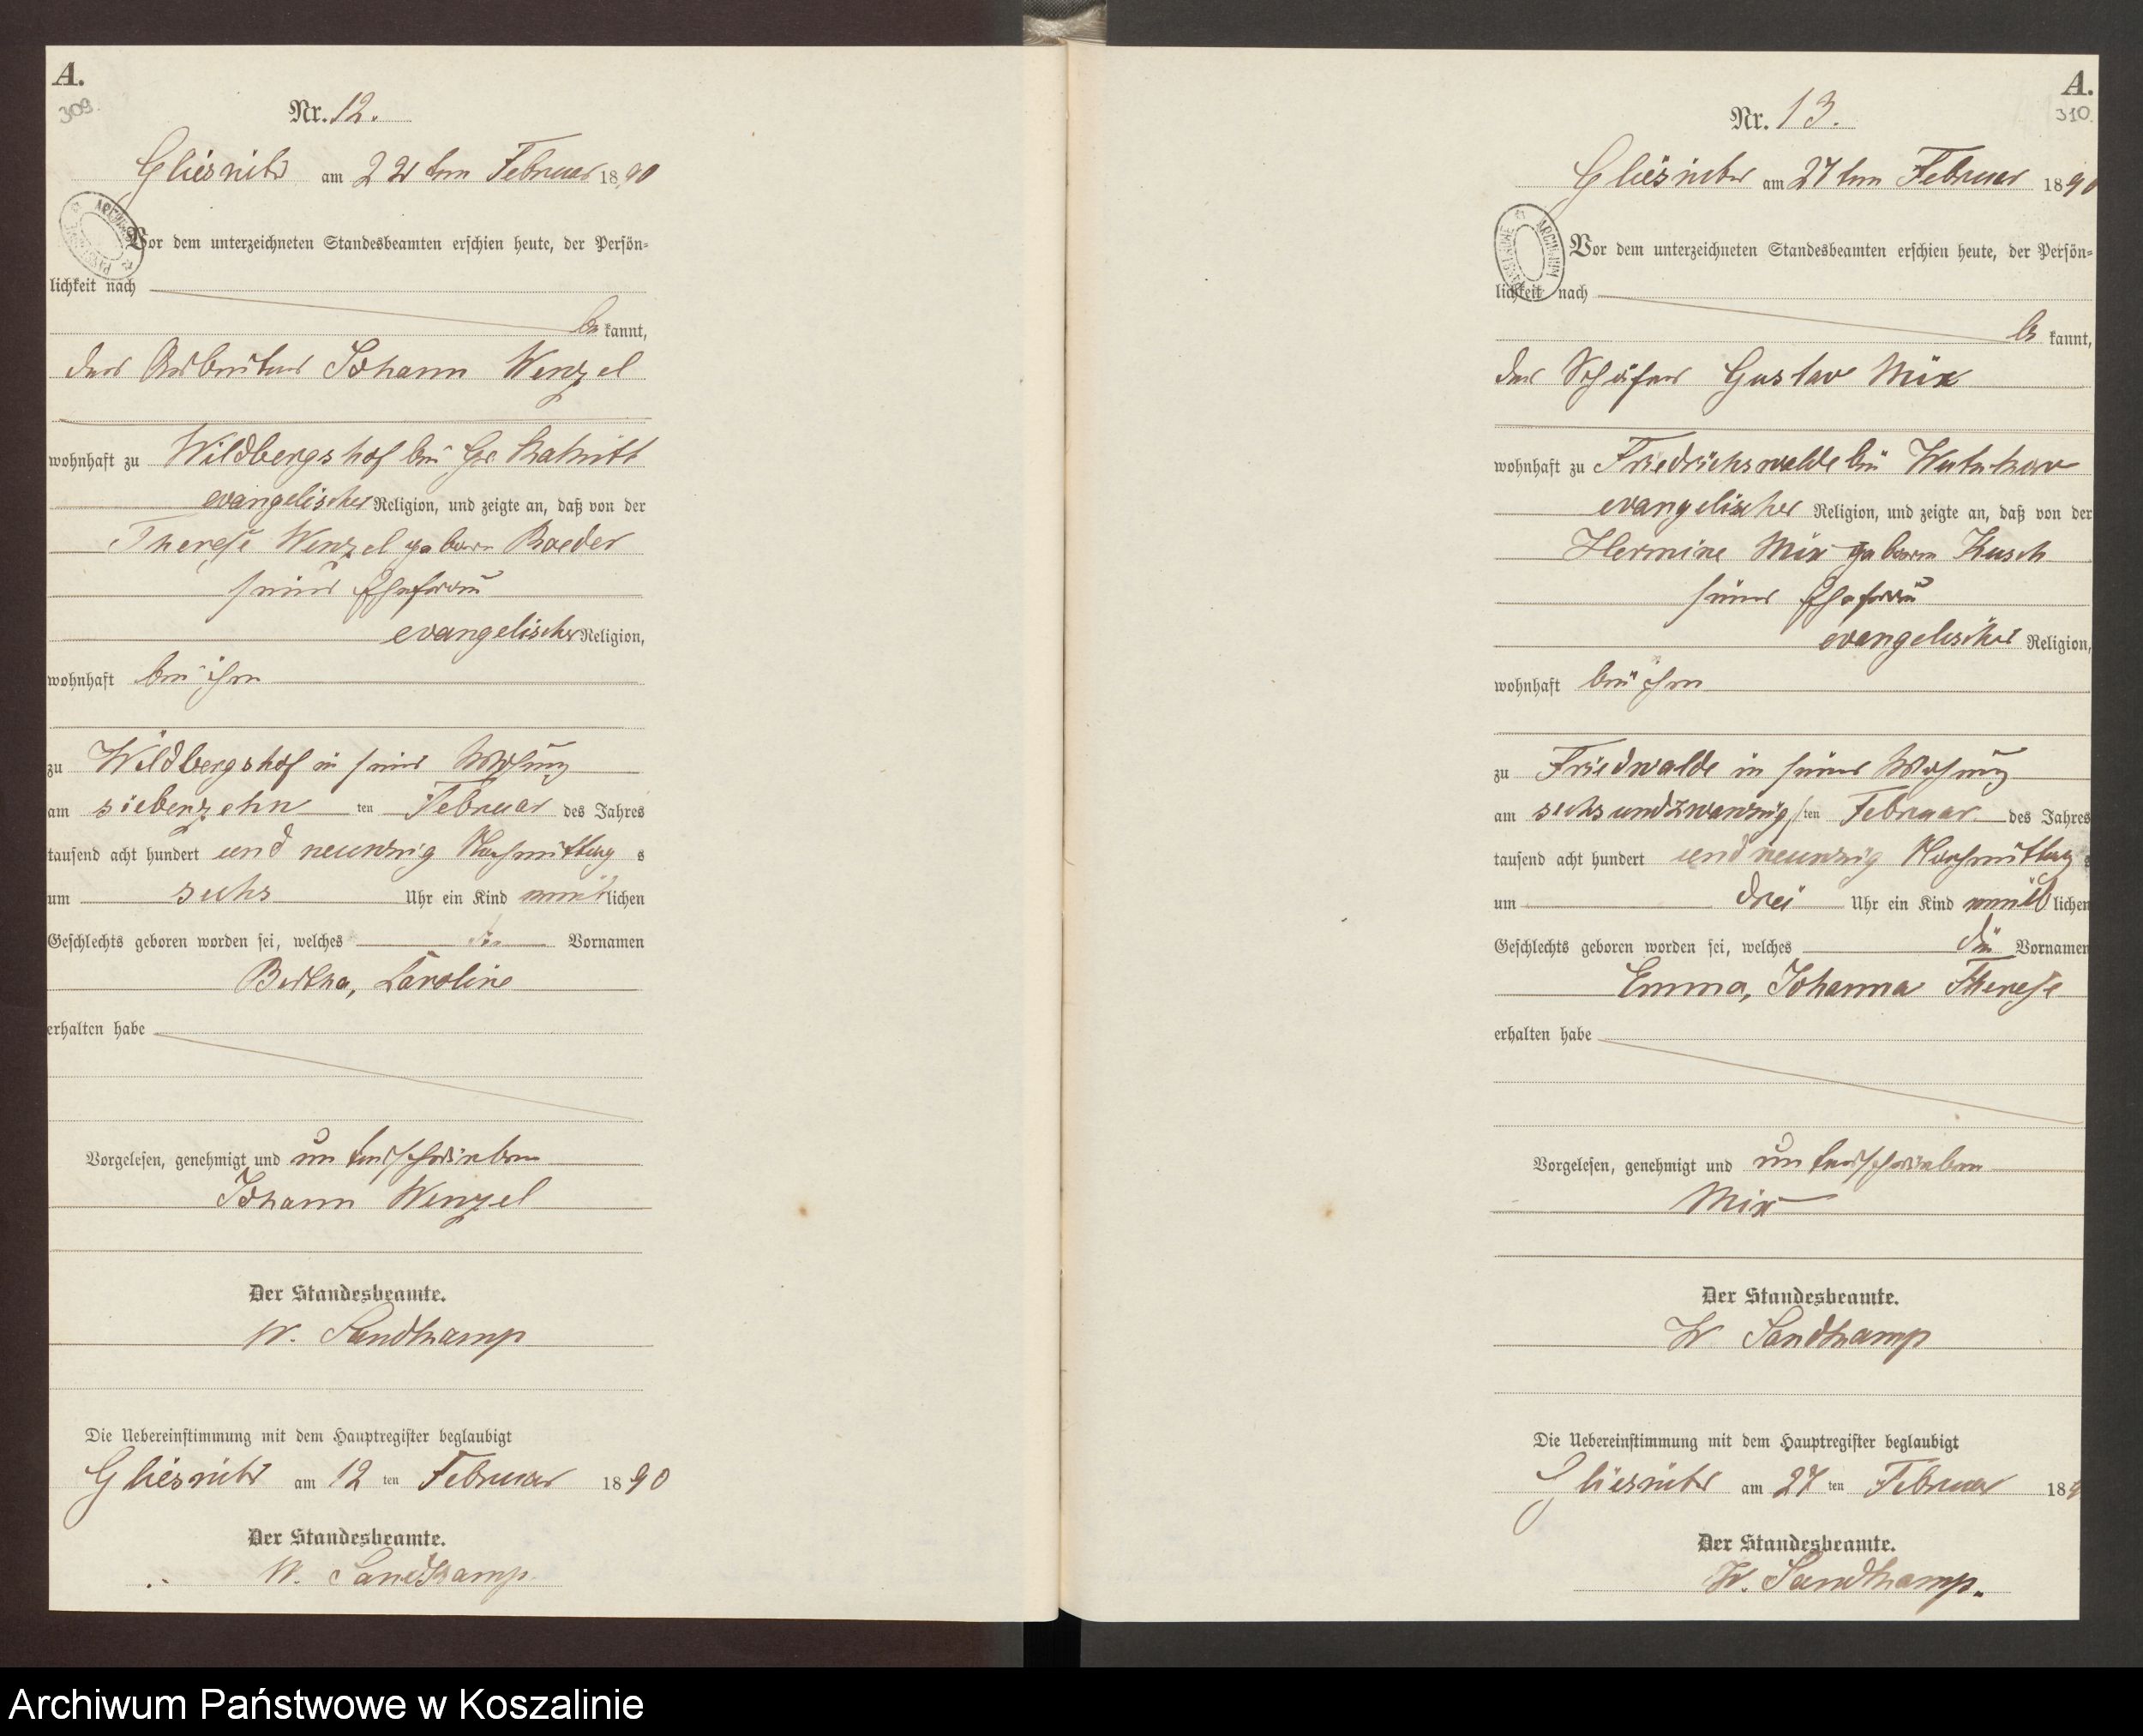 A.
309.
Nr. 12.
Gliesnitz am 22 ten Februar 1890
Vor dem unterzeichneten Standesbeamten erschien heute, der Persön-
lichkeit nach
be kannt,
der Arbeiter Johann Wenzel
wohnhaft zu Wildbergshof bei Gr.
evangelischer Religion, und zeigte an, daß von der
Therese Wenzel geboren Roeder
seiner Ehefrau
evangelischer Religion,
wohnhaft bei ihm
zu Wildbergshof in seiner Wohnung
am siebenzehn ten Februar des Jahres
tausend acht hundert und neunzig Nachmittag s
um sechs Uhr ein Kind weiblichen
Geschlechts geboren worden sei, welches die Vornamen
Bertha, Karoline
erhalten habe
Vorgelesen, genehmigt und unterschrieben
Johann Wenzel
Der Standesbeamte.
W. Sandkamp
Die Uebereinstimmung mit dem Hauptregister beglaubigt
Gliesnitz am 12 ten Februar 1890
Der Standesbeamte.
W. Sandkamp
A.
310.
Nr. 13.
Gliesnitz am 27 ten Februar 1890
ARCHIWUM
Vor dem unterzeichneten Standesbeamten erschien heute, der Persön-
lichkeit nach
be kannt,
der Schäfer Gustav Mix
wohnhaft zu Friedrichswalde bei
evangelischer Religion, und zeigte an, daß von der
Hermine Mix geboren Kusch
seiner Ehefrau
evangelischer Religion,
wohnhaft bei ihm
zu Friedwalde in seiner Wohnung
am sechsundzwanzig ten Februar des Jahres
tausend acht hundert und neunzig Nachmittag s
um drei Uhr ein Kind weiblichen
Geschlechts geboren worden sei, welches die Vornamen
Emma, Johanna Therese
erhalten habe
Vorgelesen, genehmigt und unterschrieben
Mix
Der Standesbeamte.
W Sandkamp
Die Uebereinstimmung mit dem Hauptregister beglaubigt
Gliesnitz am 27 ten Februar 189
Der Standesbeamte.
W. Sandkamp.
Archiwum Państwowe w Koszalinie